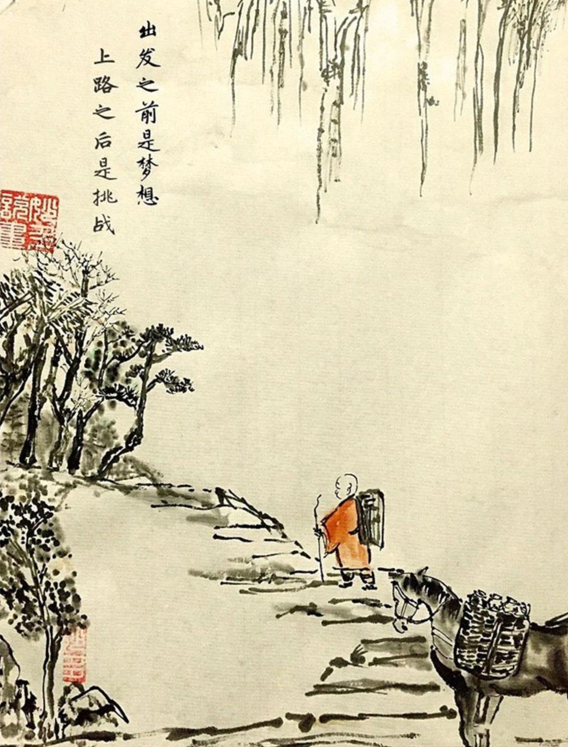 出发之前是梦想
上路之后是挑战